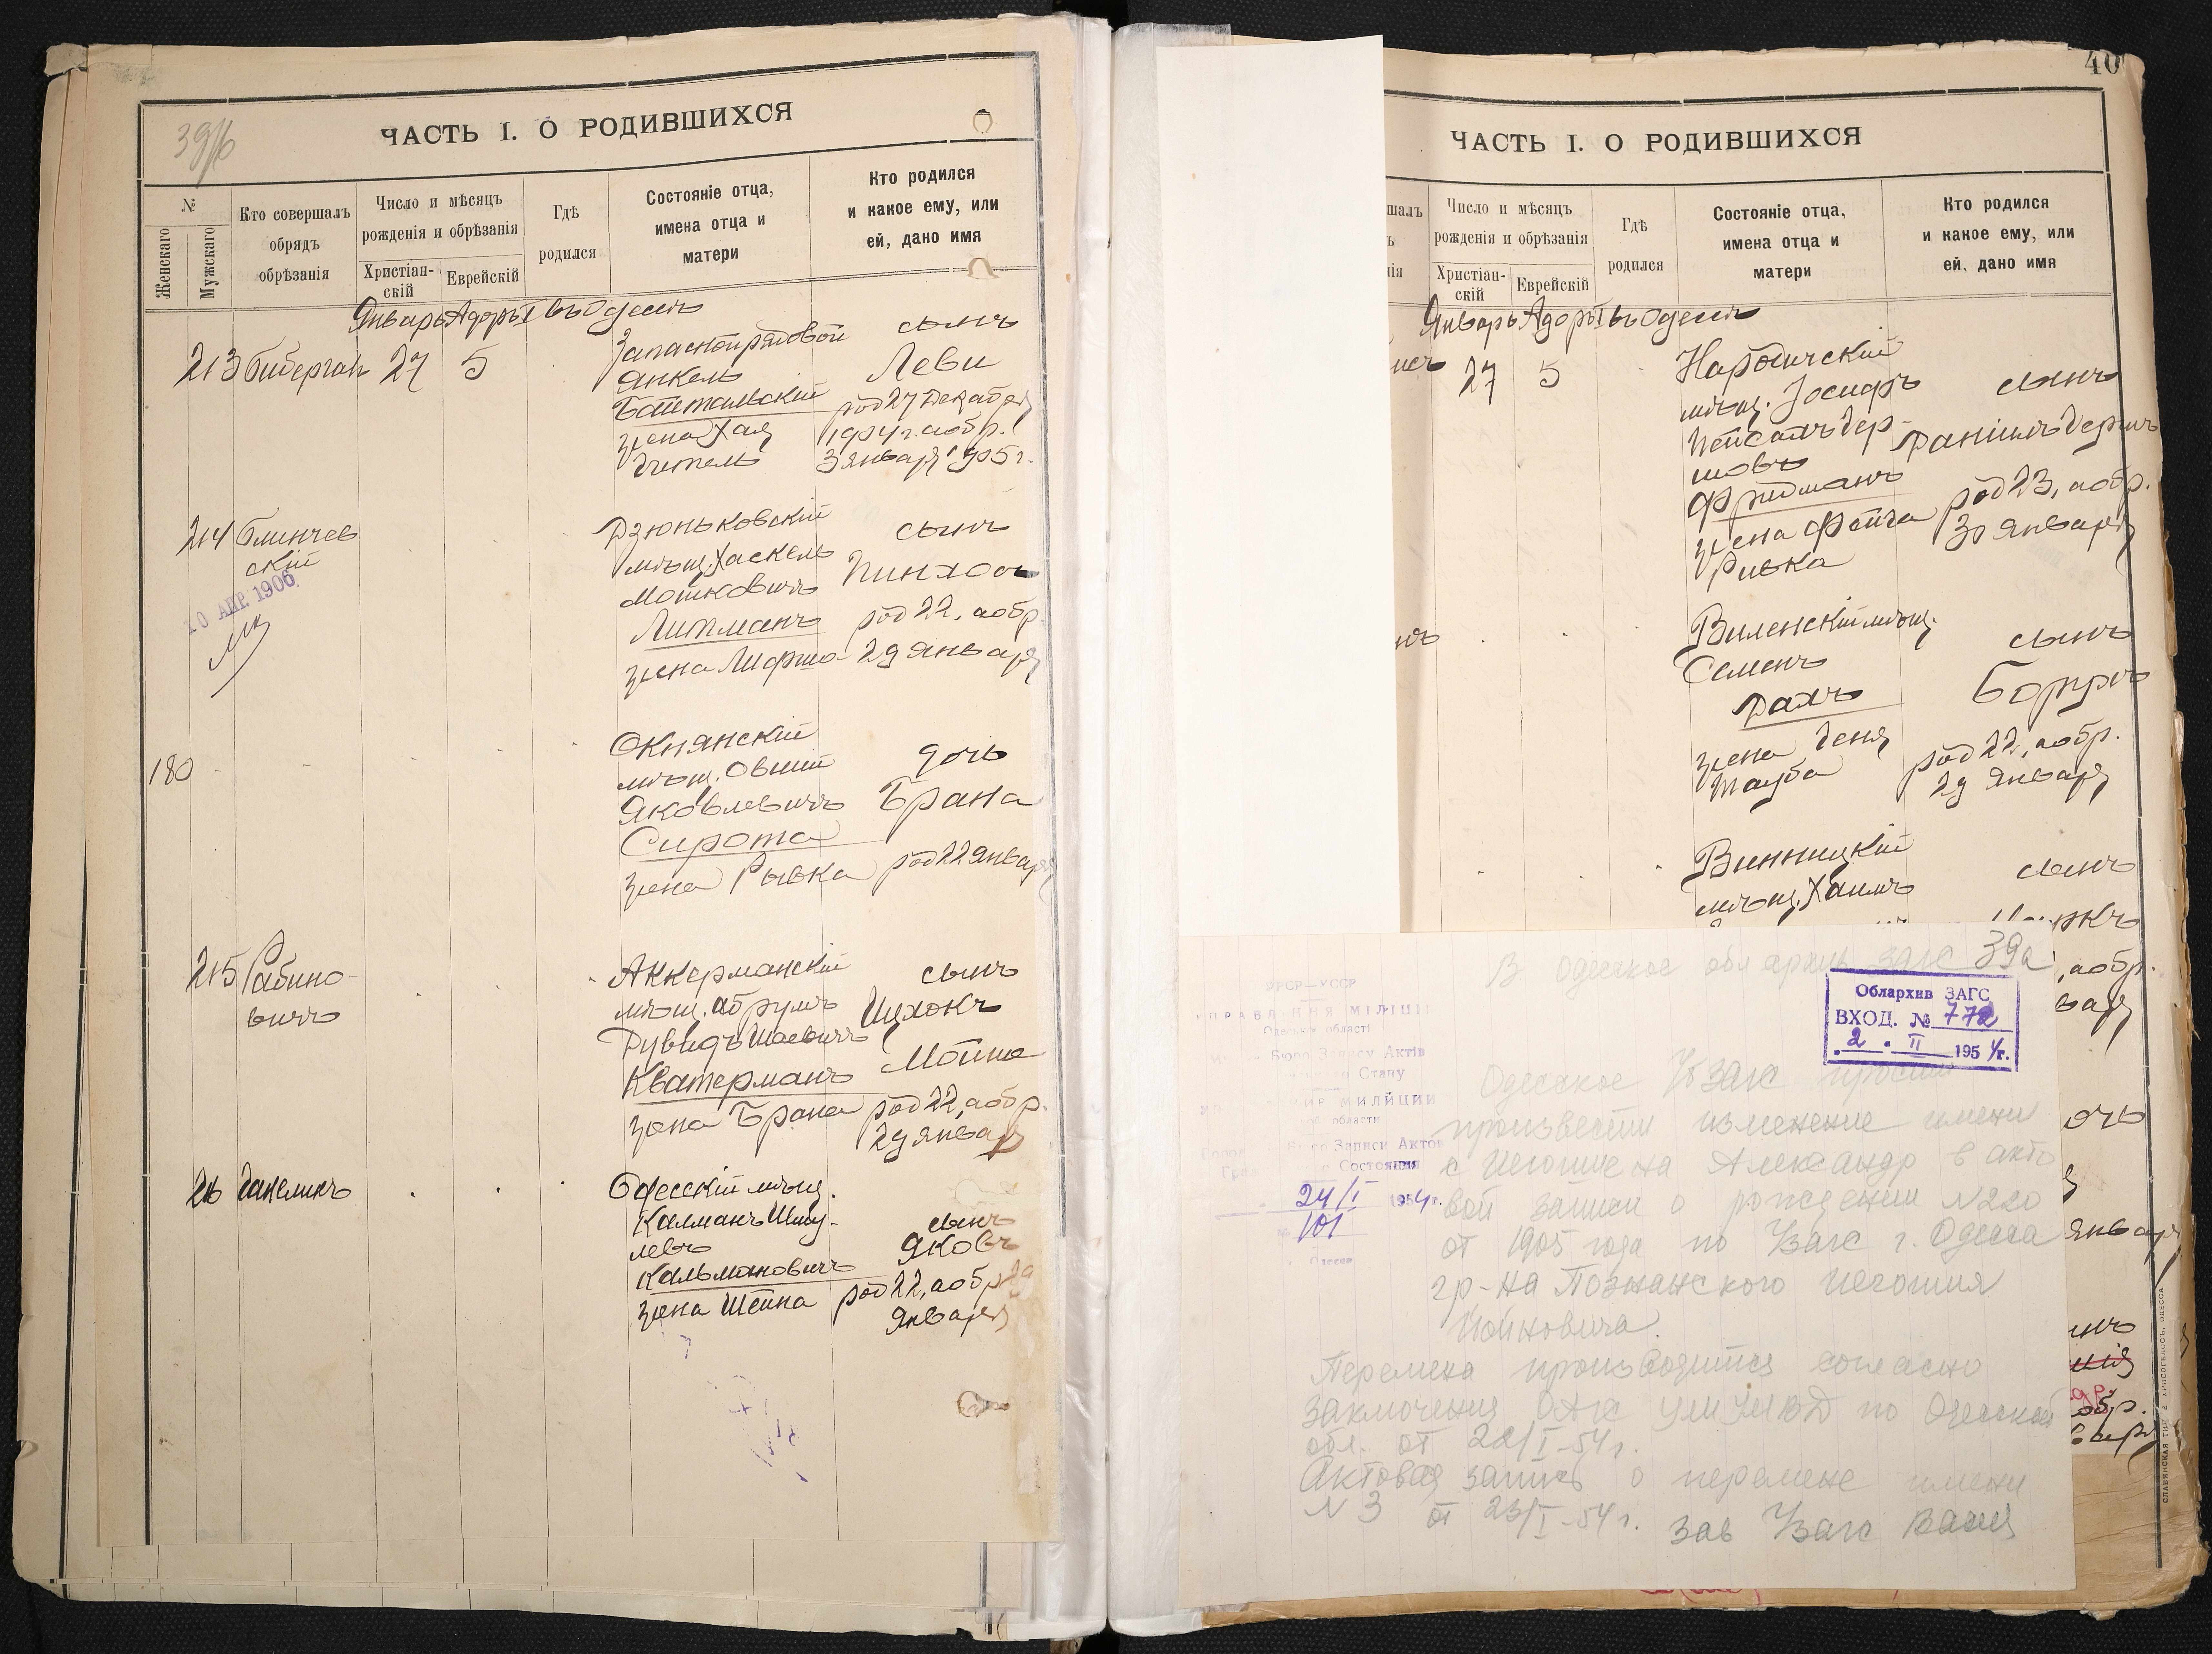 39/б
ЧАСТЬ I. О РОДИВШИХСЯ
№
Женскаго
Мужскаго
Кто совершалъ
обрядъ
обрѣзанія
Число и мѣсяцъ
рожденія и обрѣзанія
Христіан-
скій
Еврейскій
Гдѣ
родился
Состояніе отца,
имена отца и
матери
Кто родился
и какое ему, или
ей, дано имя
Январь Адаръ I въ Одессѣ
213 Биберган 27 5
Запасной рядовой
Янкель
Бательскій
жена Хая
Гитель
сынъ
Леви
род 27 Декабря
1904 г. а обр.
3 января 1905 г.
214 Блинчев
скій
10 АПР. 1906
Дзюньковскій
мѣщ. Хаскель
Мошковичъ
Липманъ
жена Лифша
сынъ
Пинхосъ
род 22, а обр.
29 января
180
Окнянскій
мѣщ. Овшій
Яковлевичъ
Сирота
жена Рывка
дочь
Брана
род 22 января
215 Рабино-
вичъ
Аккерманскій
мѣщ. Абрумъ
Дувидъ Шаевичъ
Кватерманъ
жена Брана
сынъ
Ицхокъ
Мойше
род 22, а обр.
29 января
216 Ганелинъ
Одесскій мѣщ.
Калманъ Шму-
левъ
Кальмановичъ
жена Шейна
сынъ
Яковъ
род 22, а обр. 29
Января
40
ЧАСТЬ I. О РОДИВШИХСЯ
шалъ
ъ
нія
Число и мѣсяцъ
рожденія и обрѣзанія
Христіан-
скій
Еврейскій
Гдѣ
родился
Состояніе отца,
имена отца и
матери
Кто родился
и какое ему, или
ей, дано имя
Январь Адаръ I въ Одессѣ
27 5
Народичскій
мѣщ. Іосифъ
Пейсахъ Гер-
шовъ
Фридманъ
жена Фейга
Ривка
сынъ
Даніилъ Герш
род 23, а обр.
30 января
нъ
Виленскій мѣщ.
Семенъ
Дахъ
жена Геня
Тауба
сынъ
Борухъ
род 22, а обр.
29 января
Винницкій
мѣщ. Хаимъ
сынъ
ркъ
, а обр.
варя
очь
января
ынъ
обр.
варя
В Одесское обл архив ЗАГС 39а
Облархив ЗАГС
ВХОД. № 772
2 . II 1954 г.
УРСР—УССР
УПРАВЛІННЯ МІЛІЦІЇ
Одеської області
Бюро Запису Актів
Стану
МИЛИЦИИ
области
Бюро Записи Актов
Состояния
24/I 1954 г.
№ 101
Одесса
Одесское УбЗАГС просит
произвести изменение имени
с Иегошие на Александр в акто
вой записи о рождении N 220
от 1905 года по УЗАГС г. Одесса
гр-на Познанского Иегошия
Йойновича.
Перемена производится согласно
заключения ОАГС УМ УМВД по Одесской
обл. от 22/I-54 г.
Актовая запись о перемене имени
N 3 от 23/I-54 г. зав УЗАГС
СЛАВЯНСКАЯ ТИП. Е. ХРИСОГЕЛОСЪ, ОДЕССА